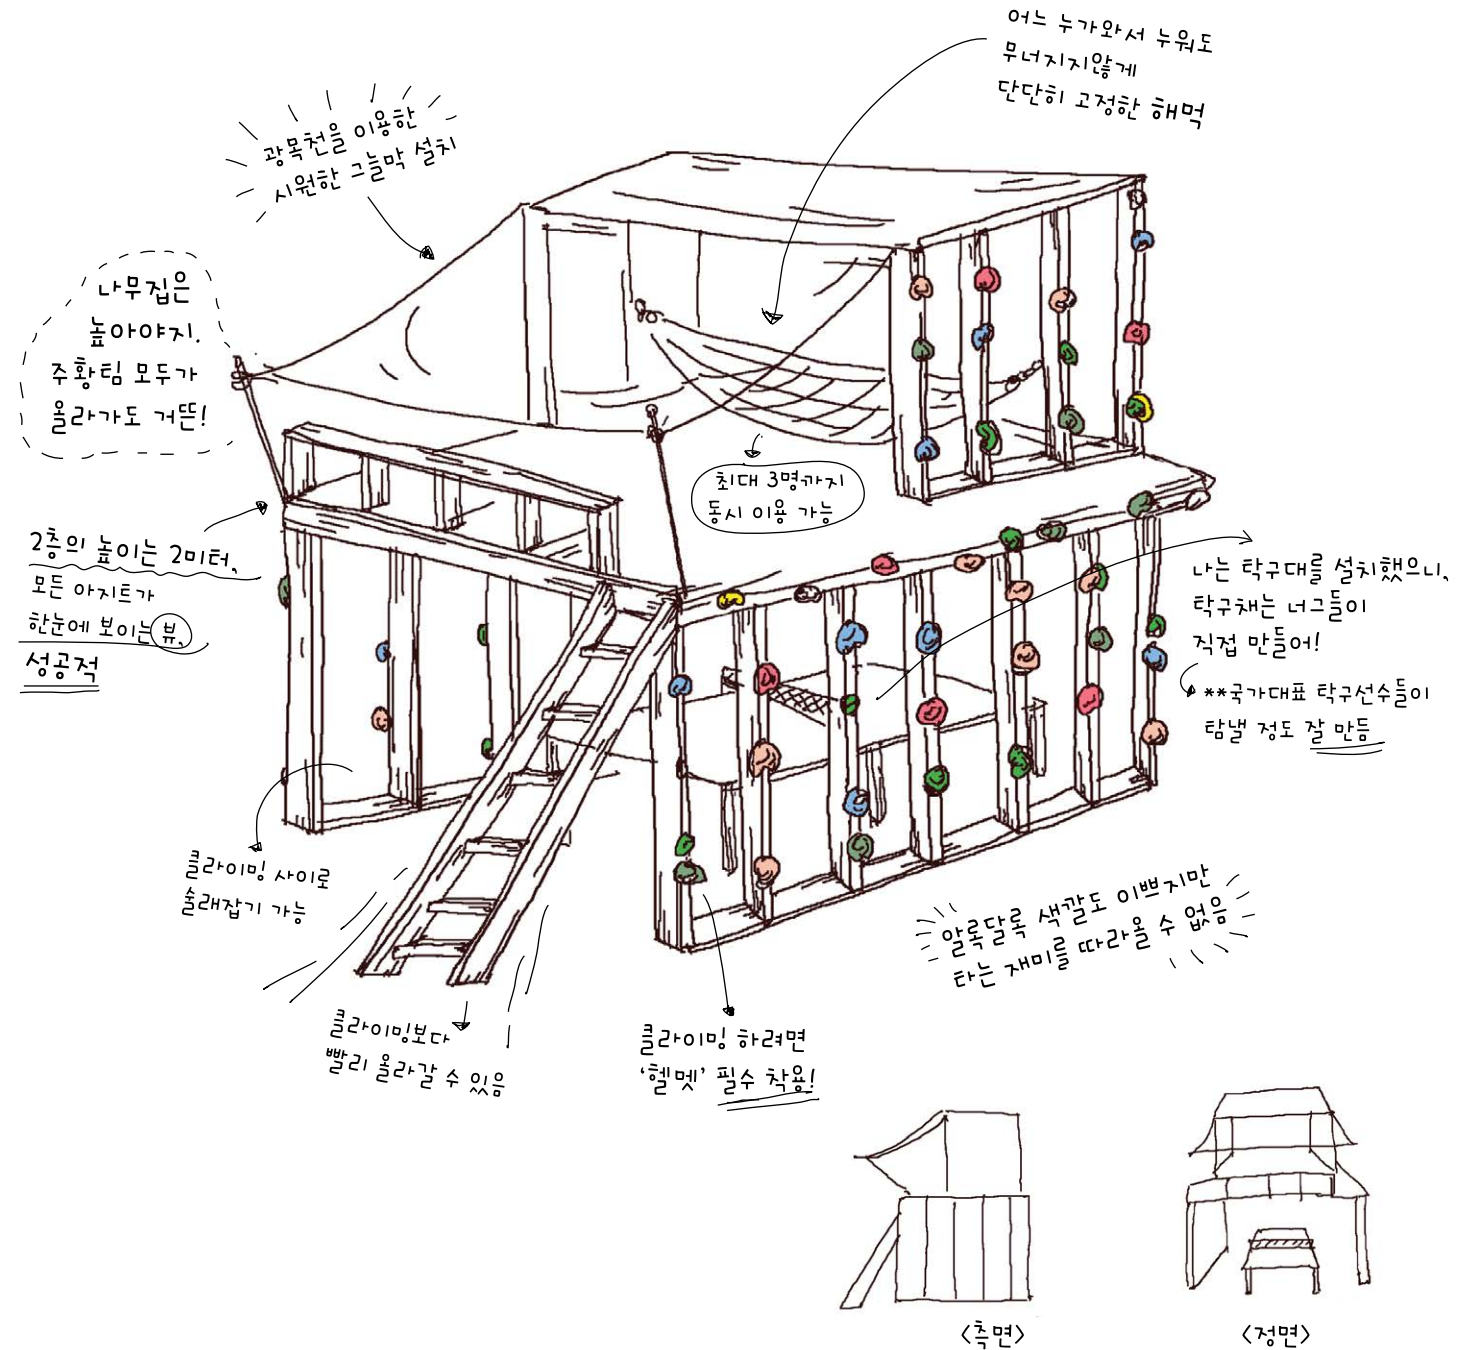 어느 누가와서 누워도
무너지지않게
단단히 고정한 해먹
광목천을 이용한
시원한 그늘막 설치
나무집은
높아야지.
주황팀 모두가
올라가도 거뜬!
최대 3명까지
동시 이용 가능
2층의 높이는 2미터,
모든 아지트가
한눈에 보이는 뷰,
성공적
나는 탁구대를 설치했으니,
탁구채는 너그들이
직접 만들어!
**국가대표 탁구선수들이
탐낼 정도 잘 만듬
클라이밍 사이로
술래잡기 가능
알록달록 색깔도 이쁘지만
타는 재미를 따라올 수 없음
클라이밍보다
빨리 올라갈 수 있음
클라이밍 하려면
‘헬멧’ 필수 착용!
<측면>
<정면>